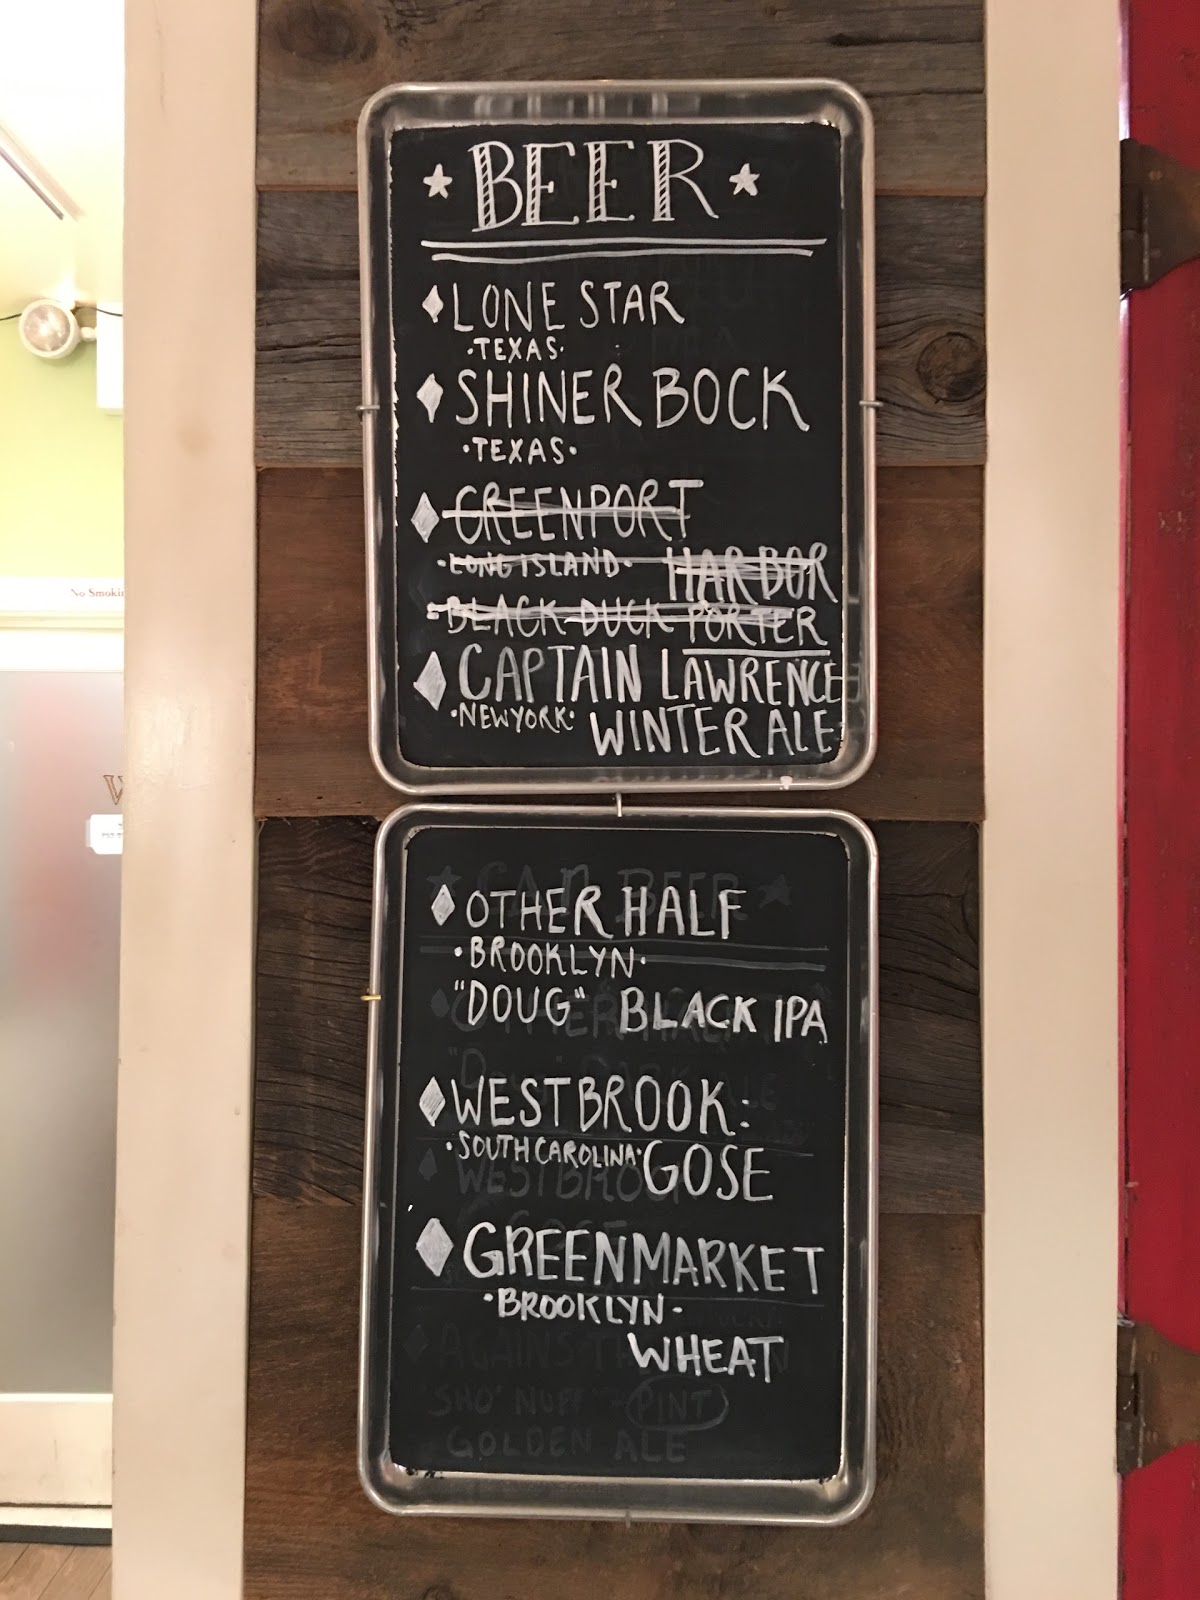 BEER
LONE STAR
·TEXAS·
SHINER BOCK
·TEXAS·
GREENPORT
·LONG ISLAND· HARBOR
BLACK DUCK PORTER
CAPTAIN LAWRENCE
·NEW YORK· WINTER ALE
No Smokin
OTHER HALF
·BROOKLYN·
"DOUG" BLACK IPA
WESTBROOK:
·SOUTH CAROLINA· GOSE
GREENMARKET
·BROOKLYN·
WHEAT
SHO' NUFF PINT
GOLDEN ALE